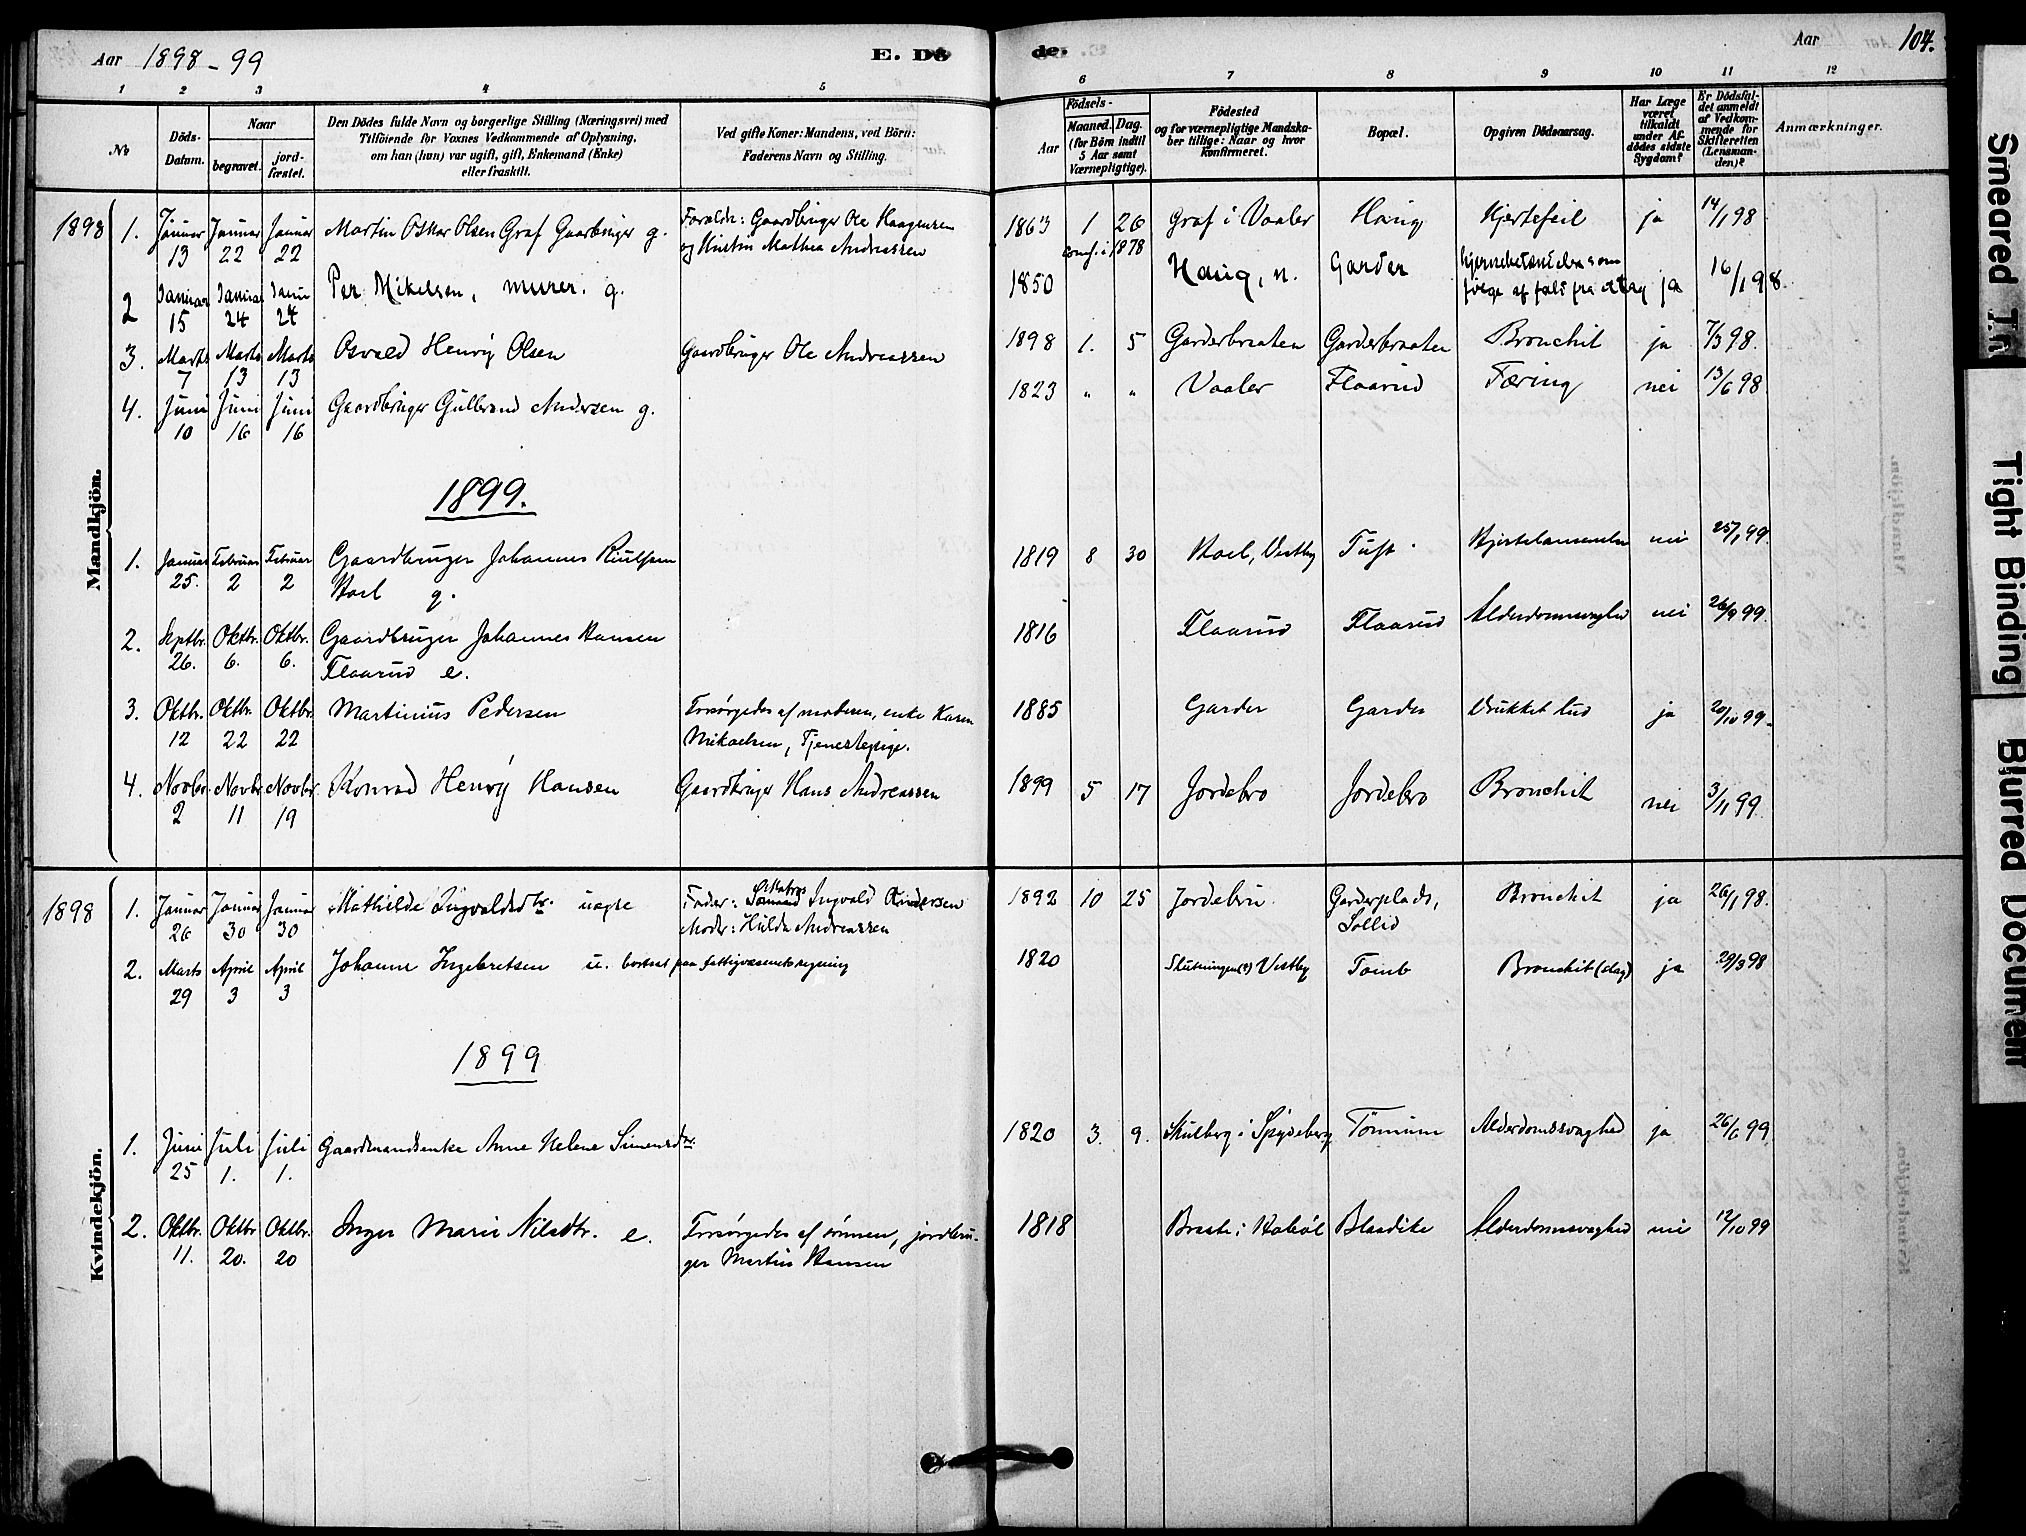 Aar 1898-99 E. Dö
de. Aar 104.
1 2 3 4 5
6 7 8 9 10 11 12
No
Döds-Datum.
Naar
begravet.
jord-fæstet.
Den Dödes fulde Navn og borgerlige Stilling (Næringsvei) med
Tilföiende for Voxnes Vedkommende af Oplysning,
om han (hun) var ugift, gift, Enkemand (Enke)
eller fraskilt.
Ved gifte Koner: Mandens, ved Börn:
Faderens Navn og Stilling.
Födsels-
Aar
Maaned. Dag.
(for Börn indtil
5 Aar samt
Værnepligtige).
Födested
og for værnepligtige Mandska-
ber tillige: Naar og hvor
Konfirmeret.
Bopæl.
Opgiven Dödsaarsag.
Har Læge
været
tilkaldt
under Af-
dödes sidste
Sygdom?
Er Dödsfal-
det anmeldt
af Vedkom-
mende for
Skifteretten
(Lensman-
den)?
Anmærkninger.
Mandkjön.
1898 1. Januar 13 Januar 22 Januar 22 Martin Oskar Olsen Graf Gaarbruger g. Foraldr: Gaardbruger Ole Haagensen 1863 1 26 Graf i Vaaler Haug Hjertefeil ja 14/1 98
og Kirstin Mathea Andreassen conf. i 1878
2 Januar 15 Januar 24 Janu 24 Per Mikelsen, murer. g. 1850 Haug, n. Garder ja 16/1 98.
følge af fald fra
3. Marts 7 Marts 13 Marts 13 Osvald Henrÿ Olsen Gaardbruger Ole Andreassen 1898 1. 5 Garderbraaten Garderbraaten Bronchit ja 7/3 98.
4. Juni 10 Juni 16 Juni 16 Gaardbruger Gulbrand Andersen g. 1823 " " Vaaler Flaarud Tæring nei 13/6 98.
1899.
1. Januar 25. Februar 2 Februar 2 Gaardbruger Johannes 1819 8 30 Hoel, Vestby Tuft nei 25/1 99.
Hoel g.
2. Septbr. 26. Oktbr. 6. Oktbr. 6. Gaardbruger Johannes Hansen 1816 Flaarud Flaarud Alderdomssvaghed nei 26/9 99.
Flaarud e.
3. Oktbr. 12 Oktbr. 22 Oktbr. 22 Martinius Pedersen Forsørgedes af moderen, enke Karen 1885 Garder Garder Vrukket lud ja 20/10 99.
Mikaelsen, Tjenestepige.
4. Novbr. 2 Novbr. 11 Novbr. 19 Konrad Henrÿ Hansen Gaardbruger Hans Andreassen 1899 5 17 Jordebro Jordebro Bronchit nei 3/11 99.
Kvindekjön.
1898 1. Januar 26 Januar 30 Januar 30 Mathilde Ingvaldsdtr. uægte Fader: Matros Ingvald 1892 10 25 Jordebru Garderplads, Bronchit ja 26/1 98.
Moder: Hulda Andreassen Sollid
2. Marts 29 April 3 April 3 Johanne Ingebretsen u. bortsat paa fattigvæsenets regning 1820 (?) Vestby Tomb Bronchit ja 29/3 98
1899
1. Juni 25 Juli 1. Juli 1. Gaardmandsenke Anne Helene Simensdtr. 1820 3. 9. Skulberg i Spydeberg Tønnum Alderdomssvaghed ja 26/6 99.
2. Oktbr. 11. Oktbr. 20. Oktbr. 20 Inger Marie Nilsdtr. e. Forsørgedes af sønnen, jordbru- 1818 Braate i Hobøl Blaadike Alderdomssvaghed nei 12/10 99
ger Martin Hansen
Smeared
Tight Binding
Blurred Document